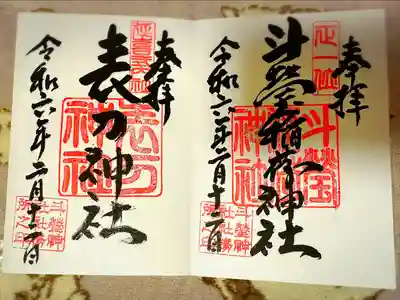 奉拝
正一位
斗瑩稲荷神社
令和六年二月十二日
斗瑩神
社社務
所之印
奉拝
延喜式内社
表刀神社
表刀
神社
令和六年二月十二日
斗瑩神
社社務
所之印